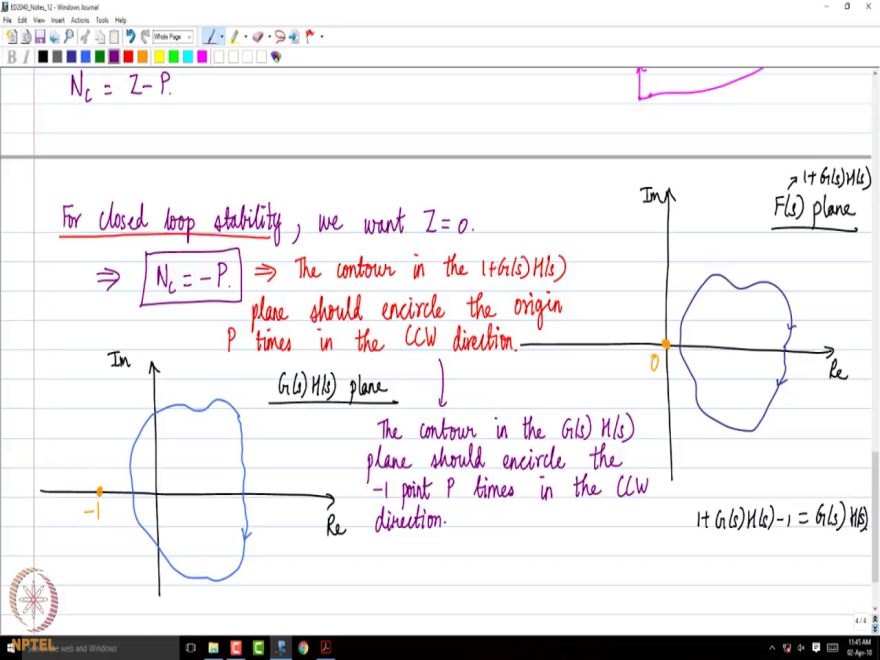 ED2040_Notes_12 - Windows Journal
File Edit View Insert Actions Tools Help
Whole Page
B I
Nc = Z - P.
For closed loop stability, we want Z = 0.
⇒ Nc = - P. ⇒ The contour in the 1+G(s)H(s)
plane should encircle the origin
P times in the CCW direction.
Im
1+G(s)H(s)
F(s) plane
0
Re
Im
G(s)H(s) plane
-1
Re
The contour in the G(s)H(s)
plane should encircle the
-1 point P times in the CCW
direction.
1+G(s)H(s)-1 = G(s)H(s)
4 / 4
NPTEL
the web and Windows
11:45 AM
02-Apr-18